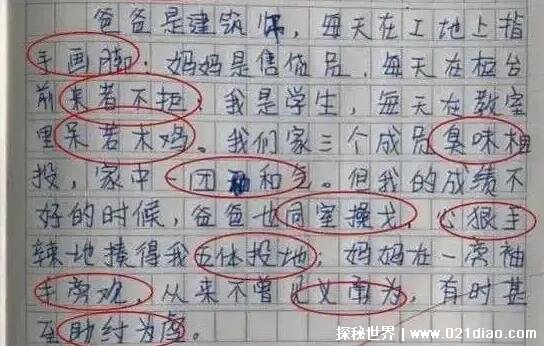 爸爸是建筑师，每天在工地上指
手画脚；妈妈是售货员，每天在柜台
前来者不拒；我是学生，每天在教室
里呆若木鸡。我们家三个成员臭味相
投，家中一团和气。但我的成绩不
好的时候，爸爸也同室操戈，心狠手
辣地揍得我五体投地；妈妈在一旁袖
手旁观，从来不曾见义勇为，有时甚
至助纣为虐。
探秘世界：www.021diao.com